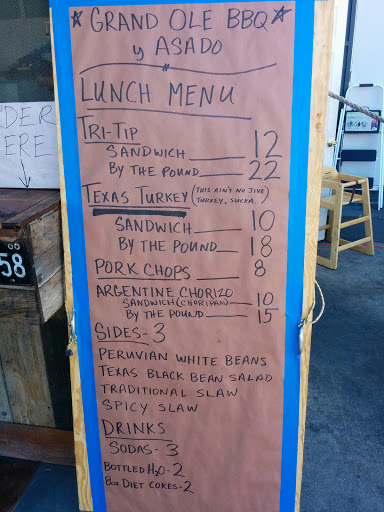 ★ GRAND OLE BBQ ★
y ASADO
LUNCH MENU
TRI-TIP
SANDWICH ____ 12
BY THE POUND ____ 22
TEXAS TURKEY (THIS AIN'T NO JIVE TURKEY, SUCKA.)
SANDWICH ____ 10
BY THE POUND ____ 18
PORK CHOPS ____ 8
ARGENTINE CHORIZO
SANDWICH (CHORIPAN) ____ 10
BY THE POUND ____ 15
SIDES - 3
PERUVIAN WHITE BEANS
TEXAS BLACK BEAN SALAD
TRADITIONAL SLAW
SPICY SLAW
DRINKS
SODAS - 3
BOTTLED H2O - 2
8oz DIET COKES - 2
RDER
ERE
58